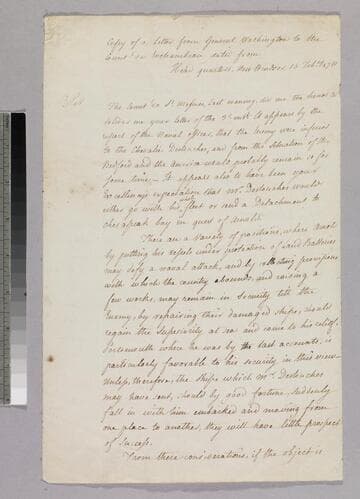 Copy of a letter from General Washington to the
Count de Rochambeau dated from
Head quarters, New Windsor 15 Feby 1781
Sir
The Count de St Mesme, last evening, did me the honor to
deliver me your letter of the 3d inst. It appears by the
report of the Naval officer, that the Enemy were inferior
to the Chevalier Destouches, and from the situation of the
Bedford and the America would probably remain so for
some time. It appears also to have been your
Excellency's expectation that Mr Destouches would
either go with his whole fleet or send a Detachment to
Chesapeak bay in quest of Arnold.
There are a Variety of positions, where Arnold
by putting his vessels under protection of Land Batteries
may defy a naval attack, and by collecting provisions
with which the country abounds, and raising a
few works, may remain in security till the
Enemy, by repairing their damaged ships, should
regain the superiority at sea and come to his relief.
Portsmouth where he was by the last accounts, is
particularly favorable to his security in this view.
Unless, therefore, the ships which Mr Destouches
may have sent, should by good fortune, suddenly
fall in with him embarked and moving from
one place to another, they will have little prospect
of success.
From these considerations, if the object is